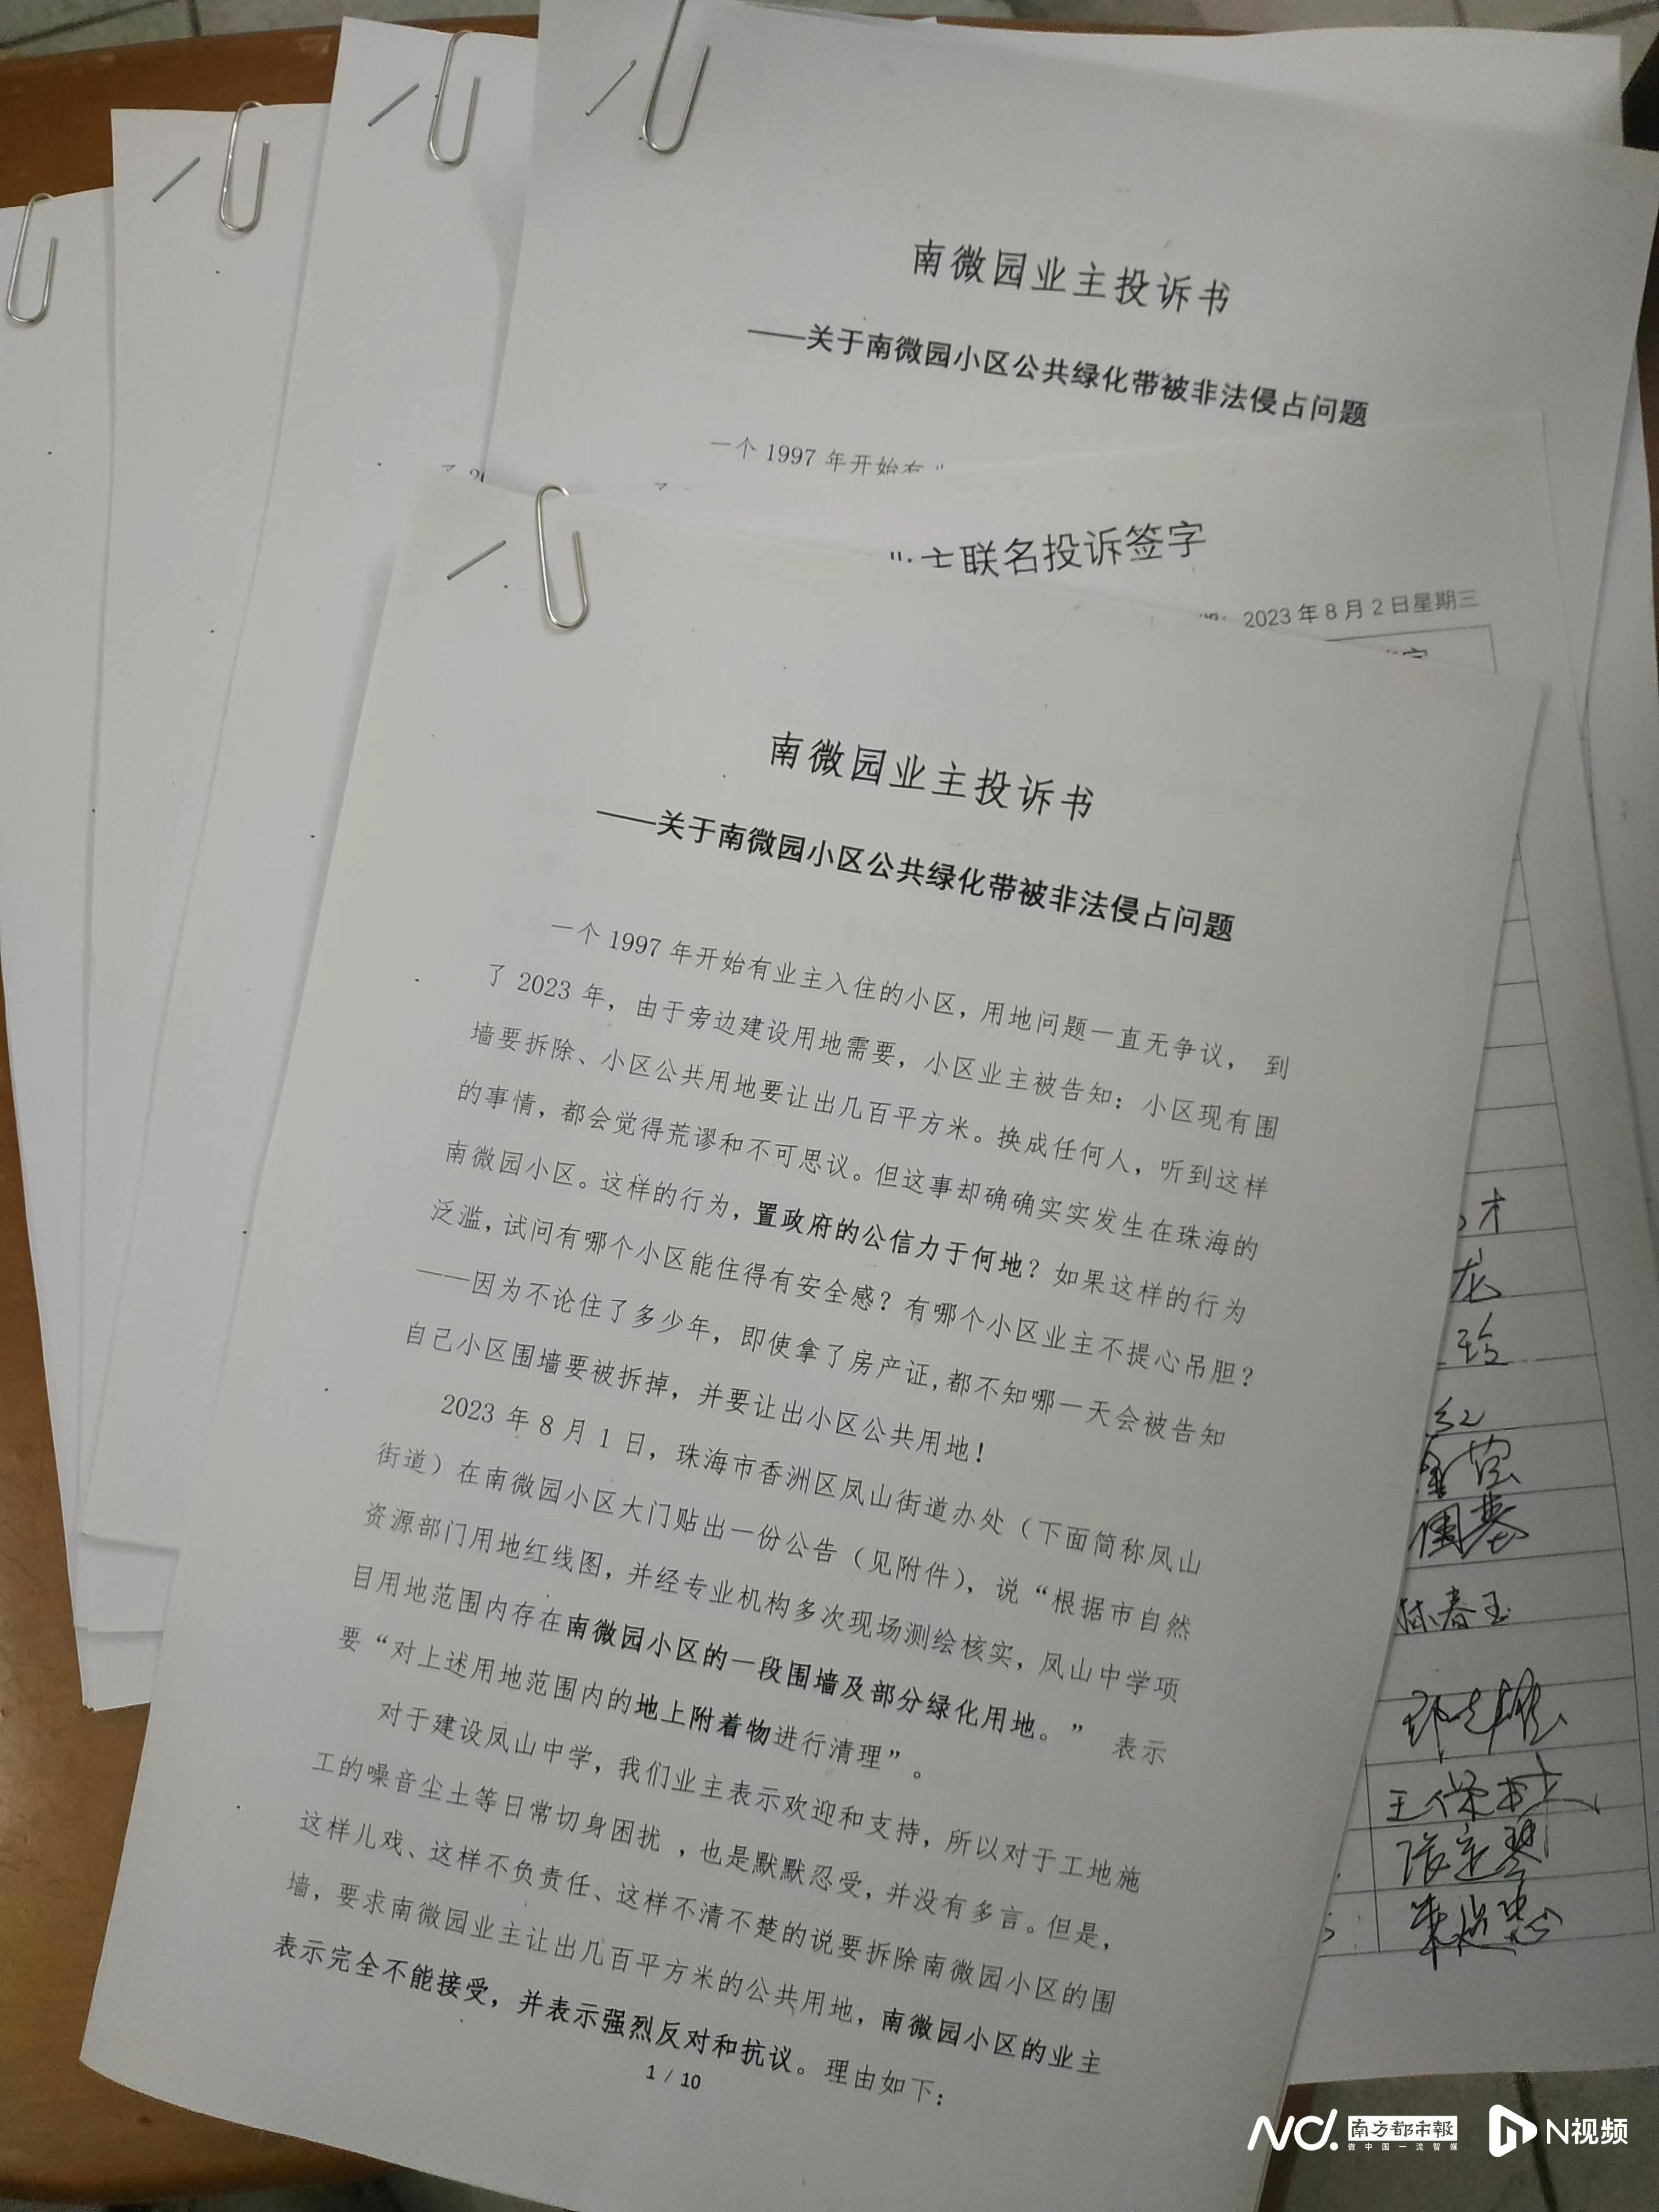 南微园业主投诉书
——关于南微园小区公共绿化带被非法侵占问题
一个 1997 年开始有
联名投诉签字
2023 年 8 月 2 日星期三
南微园业主投诉书
——关于南微园小区公共绿化带被非法侵占问题
一个 1997 年开始有业主入住的小区，用地问题一直无争议， 到
了 2023 年，由于旁边建设用地需要，小区业主被告知：小区现有围
墙要拆除、小区公共用地要让出几百平方米。换成任何人，听到这样
的事情，都会觉得荒谬和不可思议。但这事却确确实实发生在珠海的
南微园小区。这样的行为，置政府的公信力于何地？如果这样的行为
泛滥，试问有哪个小区能住得有安全感？有哪个小区业主不提心吊胆？
——因为不论住了多少年，即使拿了房产证,都不知哪一天会被告知
自己小区围墙要被拆掉，并要让出小区公共用地！
2023 年 8 月 1 日，珠海市香洲区凤山街道办处（下面简称凤山
街道）在南微园小区大门贴出一份公告（见附件），说“根据市自然
资源部门用地红线图，并经专业机构多次现场测绘核实，凤山中学项
目用地范围内存在南微园小区的一段围墙及部分绿化用地。” 表示
要“对上述用地范围内的地上附着物进行清理”。
对于建设凤山中学，我们业主表示欢迎和支持，所以对于工地施
工的噪音尘土等日常切身困扰 ，也是默默忍受，并没有多言。但是，
这样儿戏、这样不负责任、这样不清不楚的说要拆除南微园小区的围
墙，要求南微园业主让出几百平方米的公共用地，南微园小区的业主
表示完全不能接受，并表示强烈反对和抗议。理由如下：
1 / 10
南方都市報
做中国一流智媒
N视频